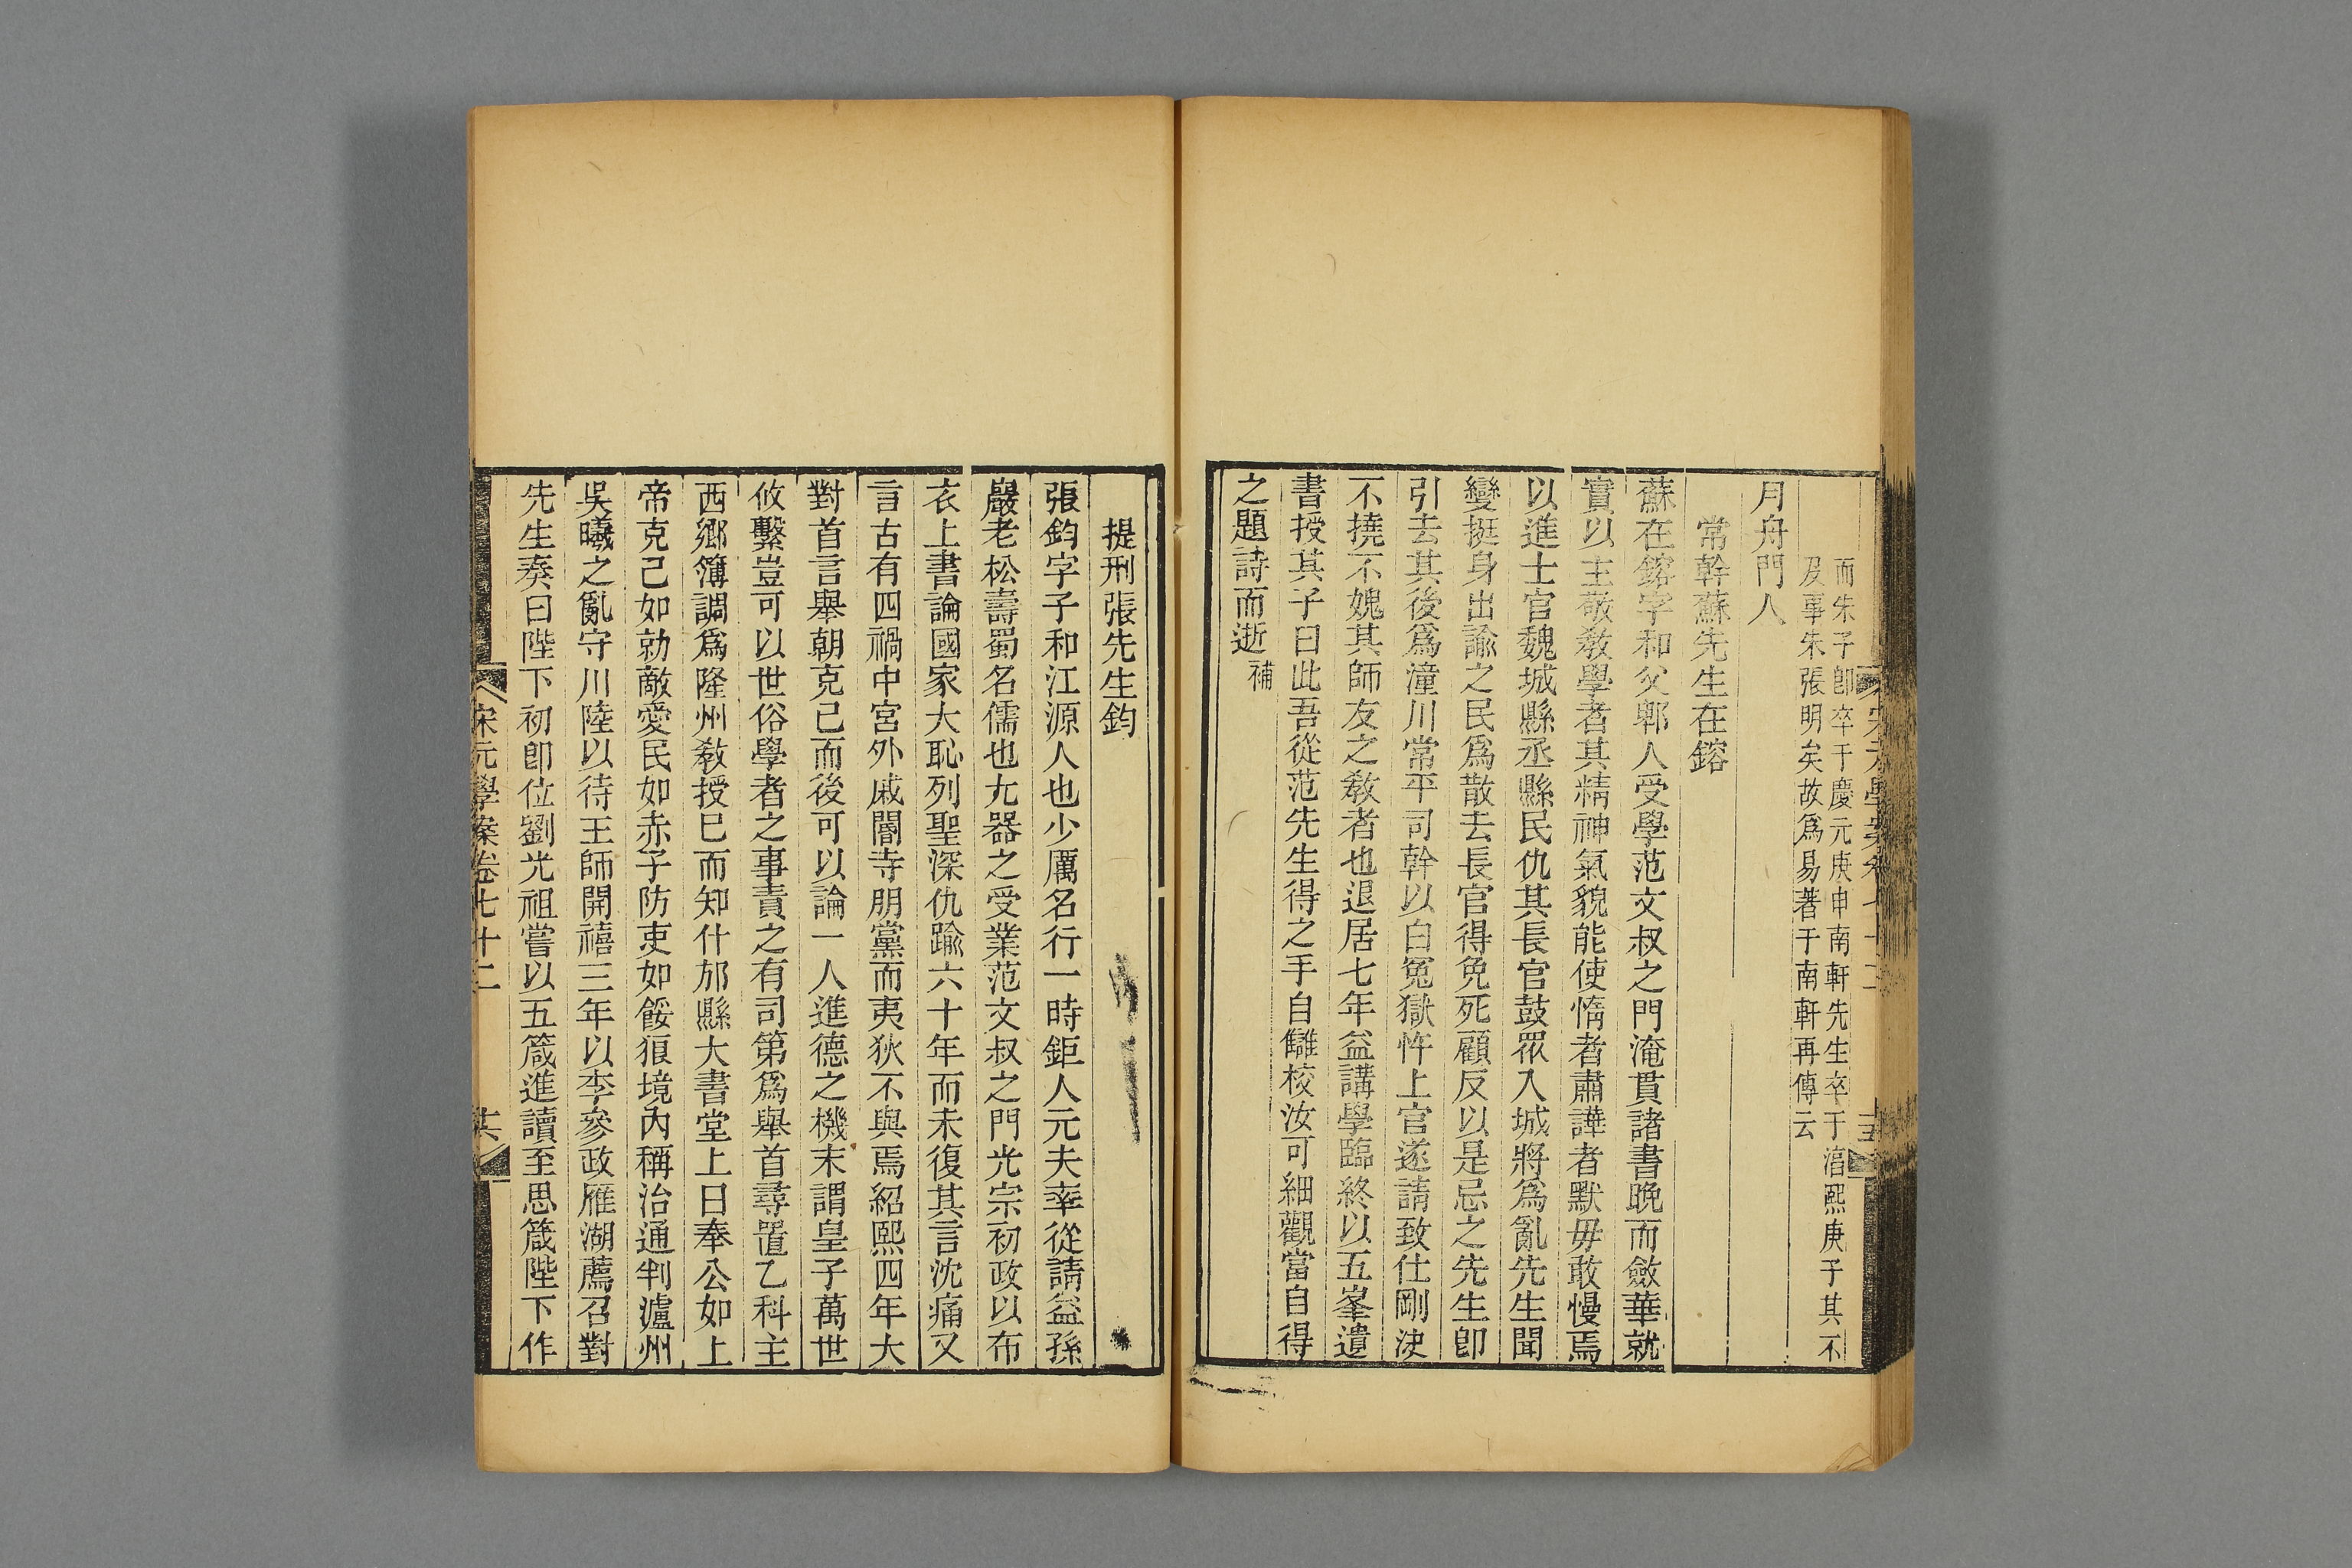 而朱子卽卒于慶元庚申南軒先生卒于淳熙庚子其不
及事朱張明矣故爲易著于南軒再傳云
月舟門人
常幹蘇先生在鎔
蘇在鎔字和父郫人受學范文叔之門淹貫諸書晚而斂華就
實以主敬敎學者其精神氣貌能使惰者肅譁者默毋敢慢焉
以進士官魏城縣丞縣民仇其長官鼓眾入城將爲亂先生聞
變挺身出諭之民爲散去長官得免死顧反以是忌之先生卽
引去其後爲潼川常平司幹以白冤獄忤上官遂請致仕剛決
不撓不媿其師友之敎者也退居七年益講學臨終以五峯遺
書授其子曰此吾從范先生得之手自讎校汝可細觀當自得
之題詩而逝補
宋元學案卷七十二
提刑張先生鈞
張鈞字子和江源人也少厲名行一時鉅人元夫率從請益孫
巖老松壽蜀名儒也尤器之受業范文叔之門光宗初政以布
衣上書論國家大恥列聖深仇踰六十年而未復其言沈痛又
言古有四禍中宮外戚閽寺朋黨而夷狄不與焉紹熙四年大
對首言舉朝克己而後可以論一人進德之機末謂皇子萬世
攸繫豈可以世俗學者之事責之有司第爲舉首尋置乙科主
西鄉簿調爲隆州敎授已而知什邡縣大書堂上曰奉公如上
帝克己如勍敵愛民如赤子防吏如餒狼境內稱治通判瀘州
吳曦之亂守川陸以待王師開禧三年以李參政雁湖薦召對
先生奏曰陛下初卽位劉光祖嘗以五箴進讀至思箴陛下作
宋元學案卷七十二